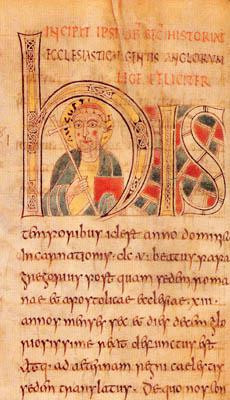 INCIPIT IPSIUS LIB SEC HISTORIAE
ECCLESIASTICAE GENTIS ANGLORUM
LEGE FELICITER
his
temporibus id est anno dominicae
incarnationis · dc · v · beatus papa
gregorius post quam sedem roma
nae et apostolicae ecclesiae · xiii ·
annos menses sex et dies decem glo
riosissime rexit defunctus est
atq· ad aeternam regni caelestis
sedem translatus. De quo nos con